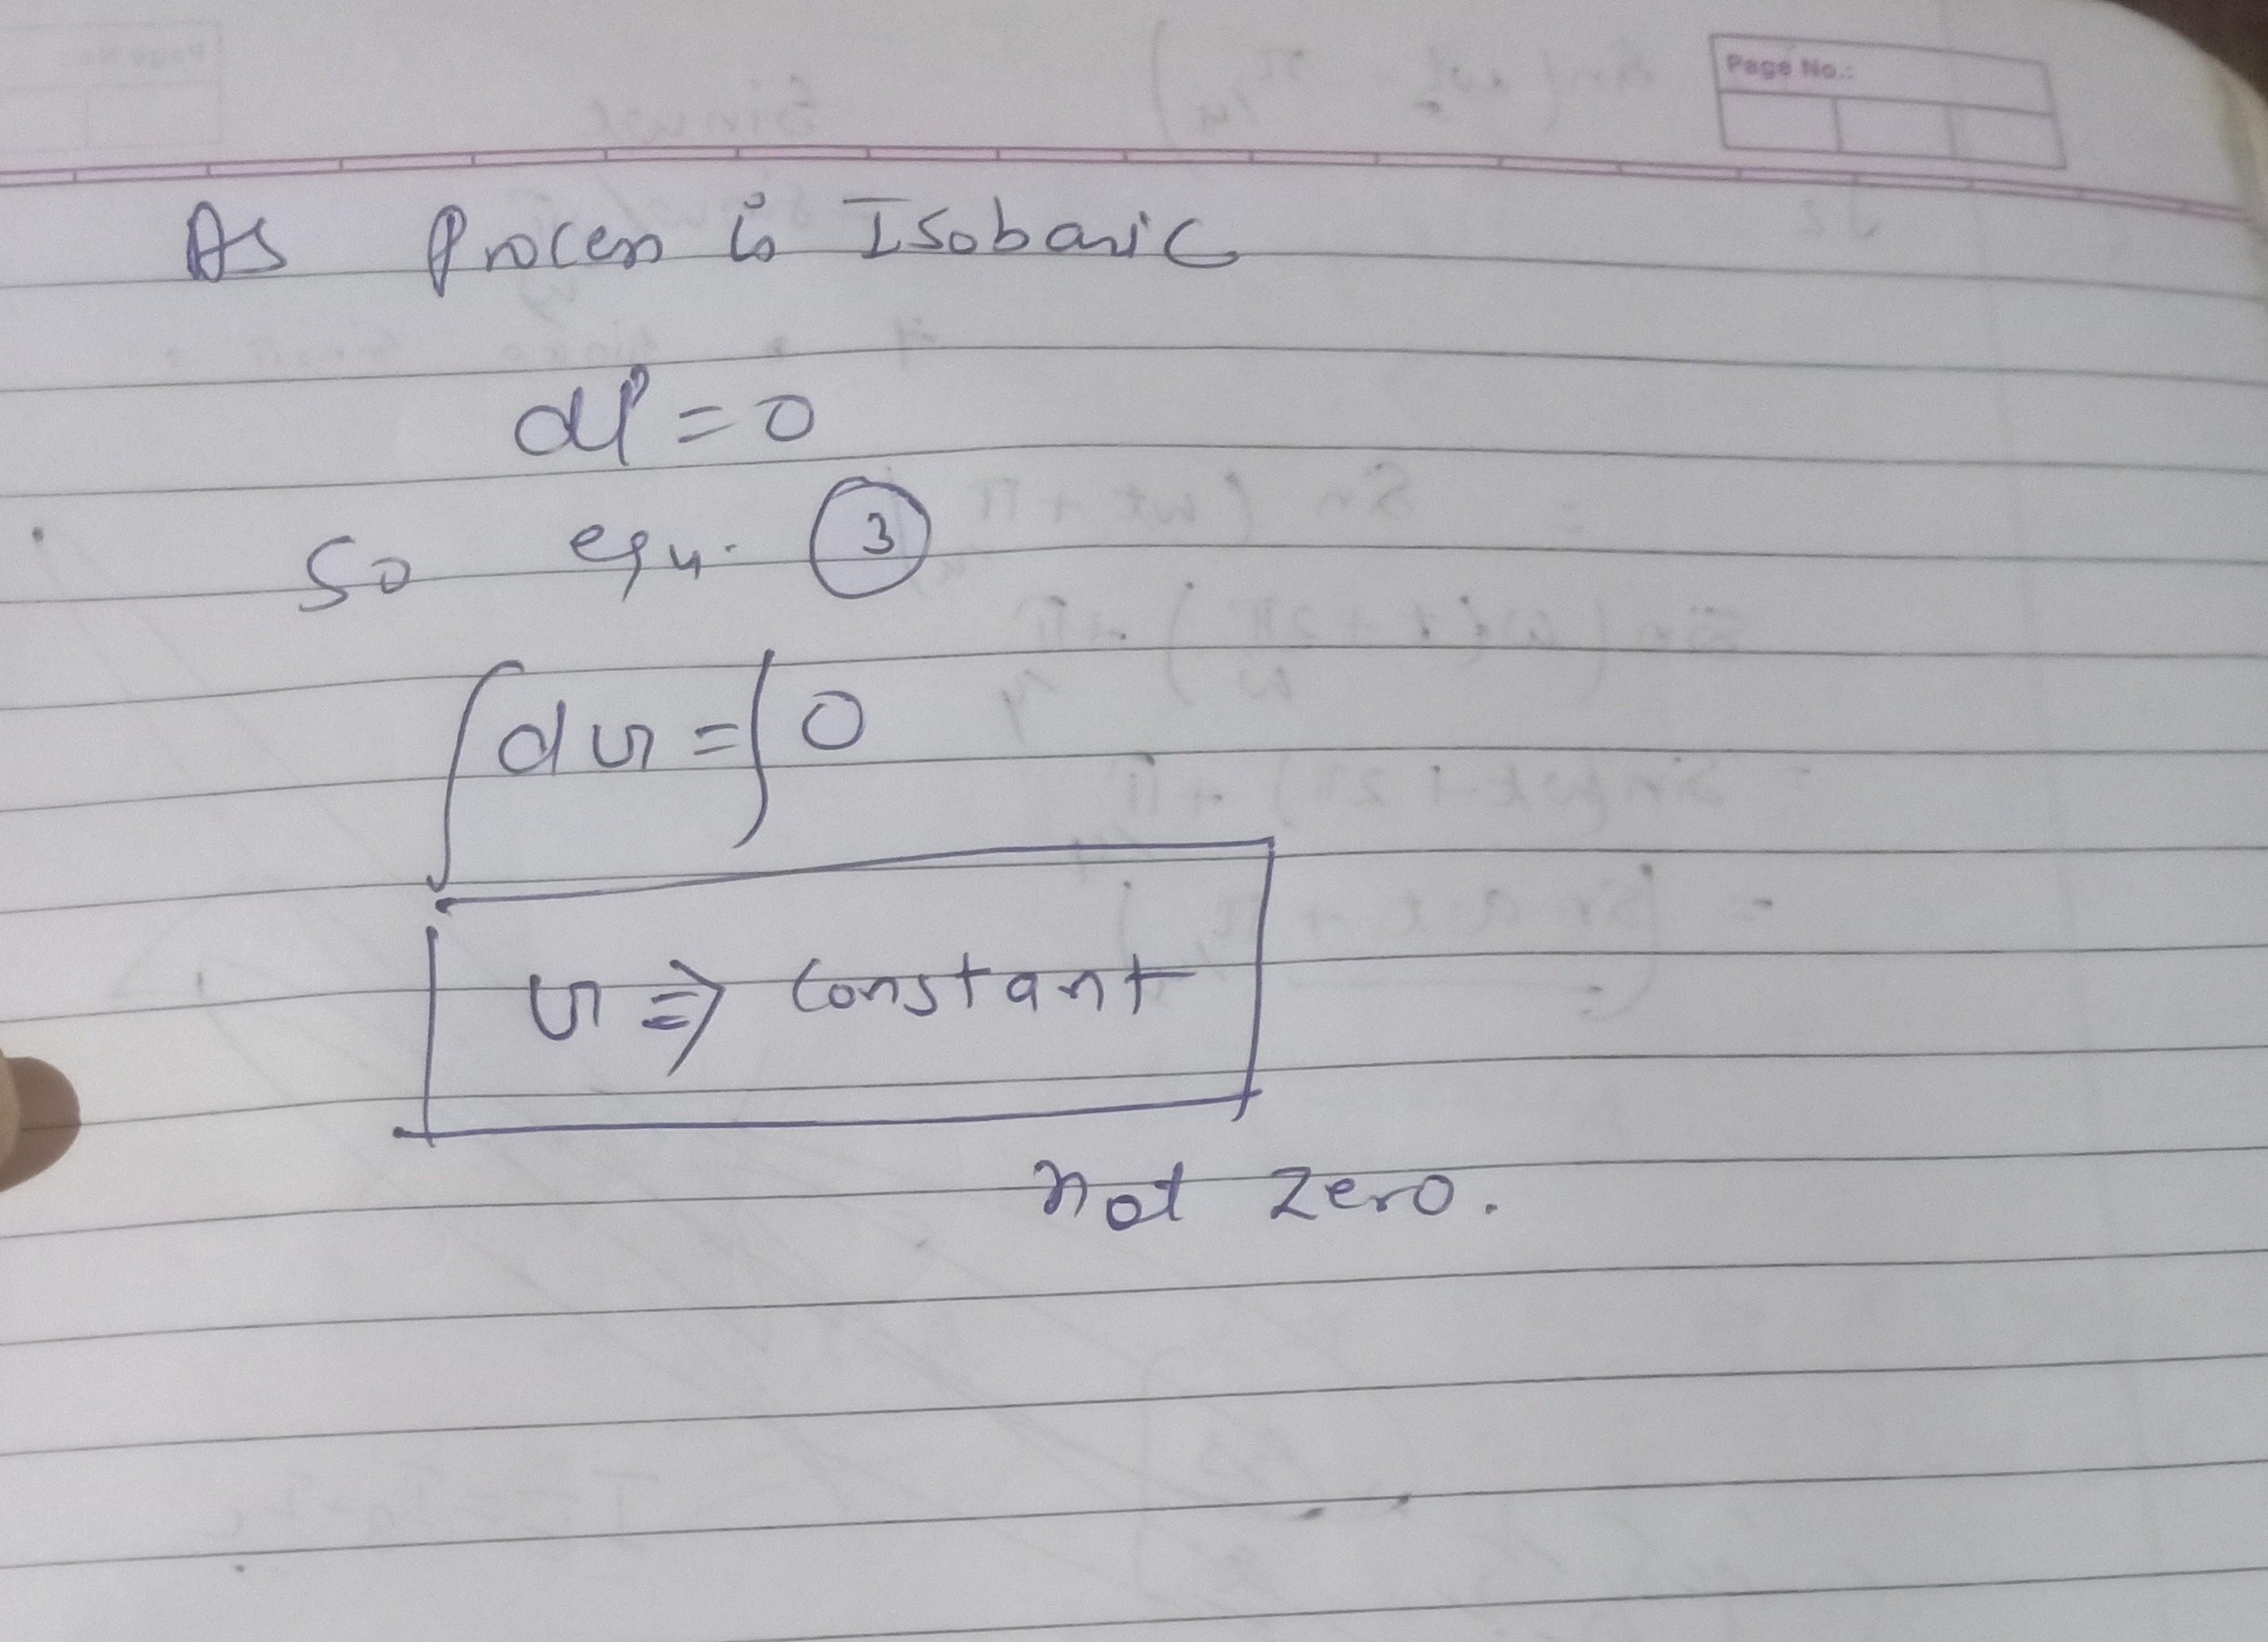 Page No.:
As Process is Isobaric
dP = 0
So equ. 3
∫dv = ∫0
v ⇒ Constant
not zero.